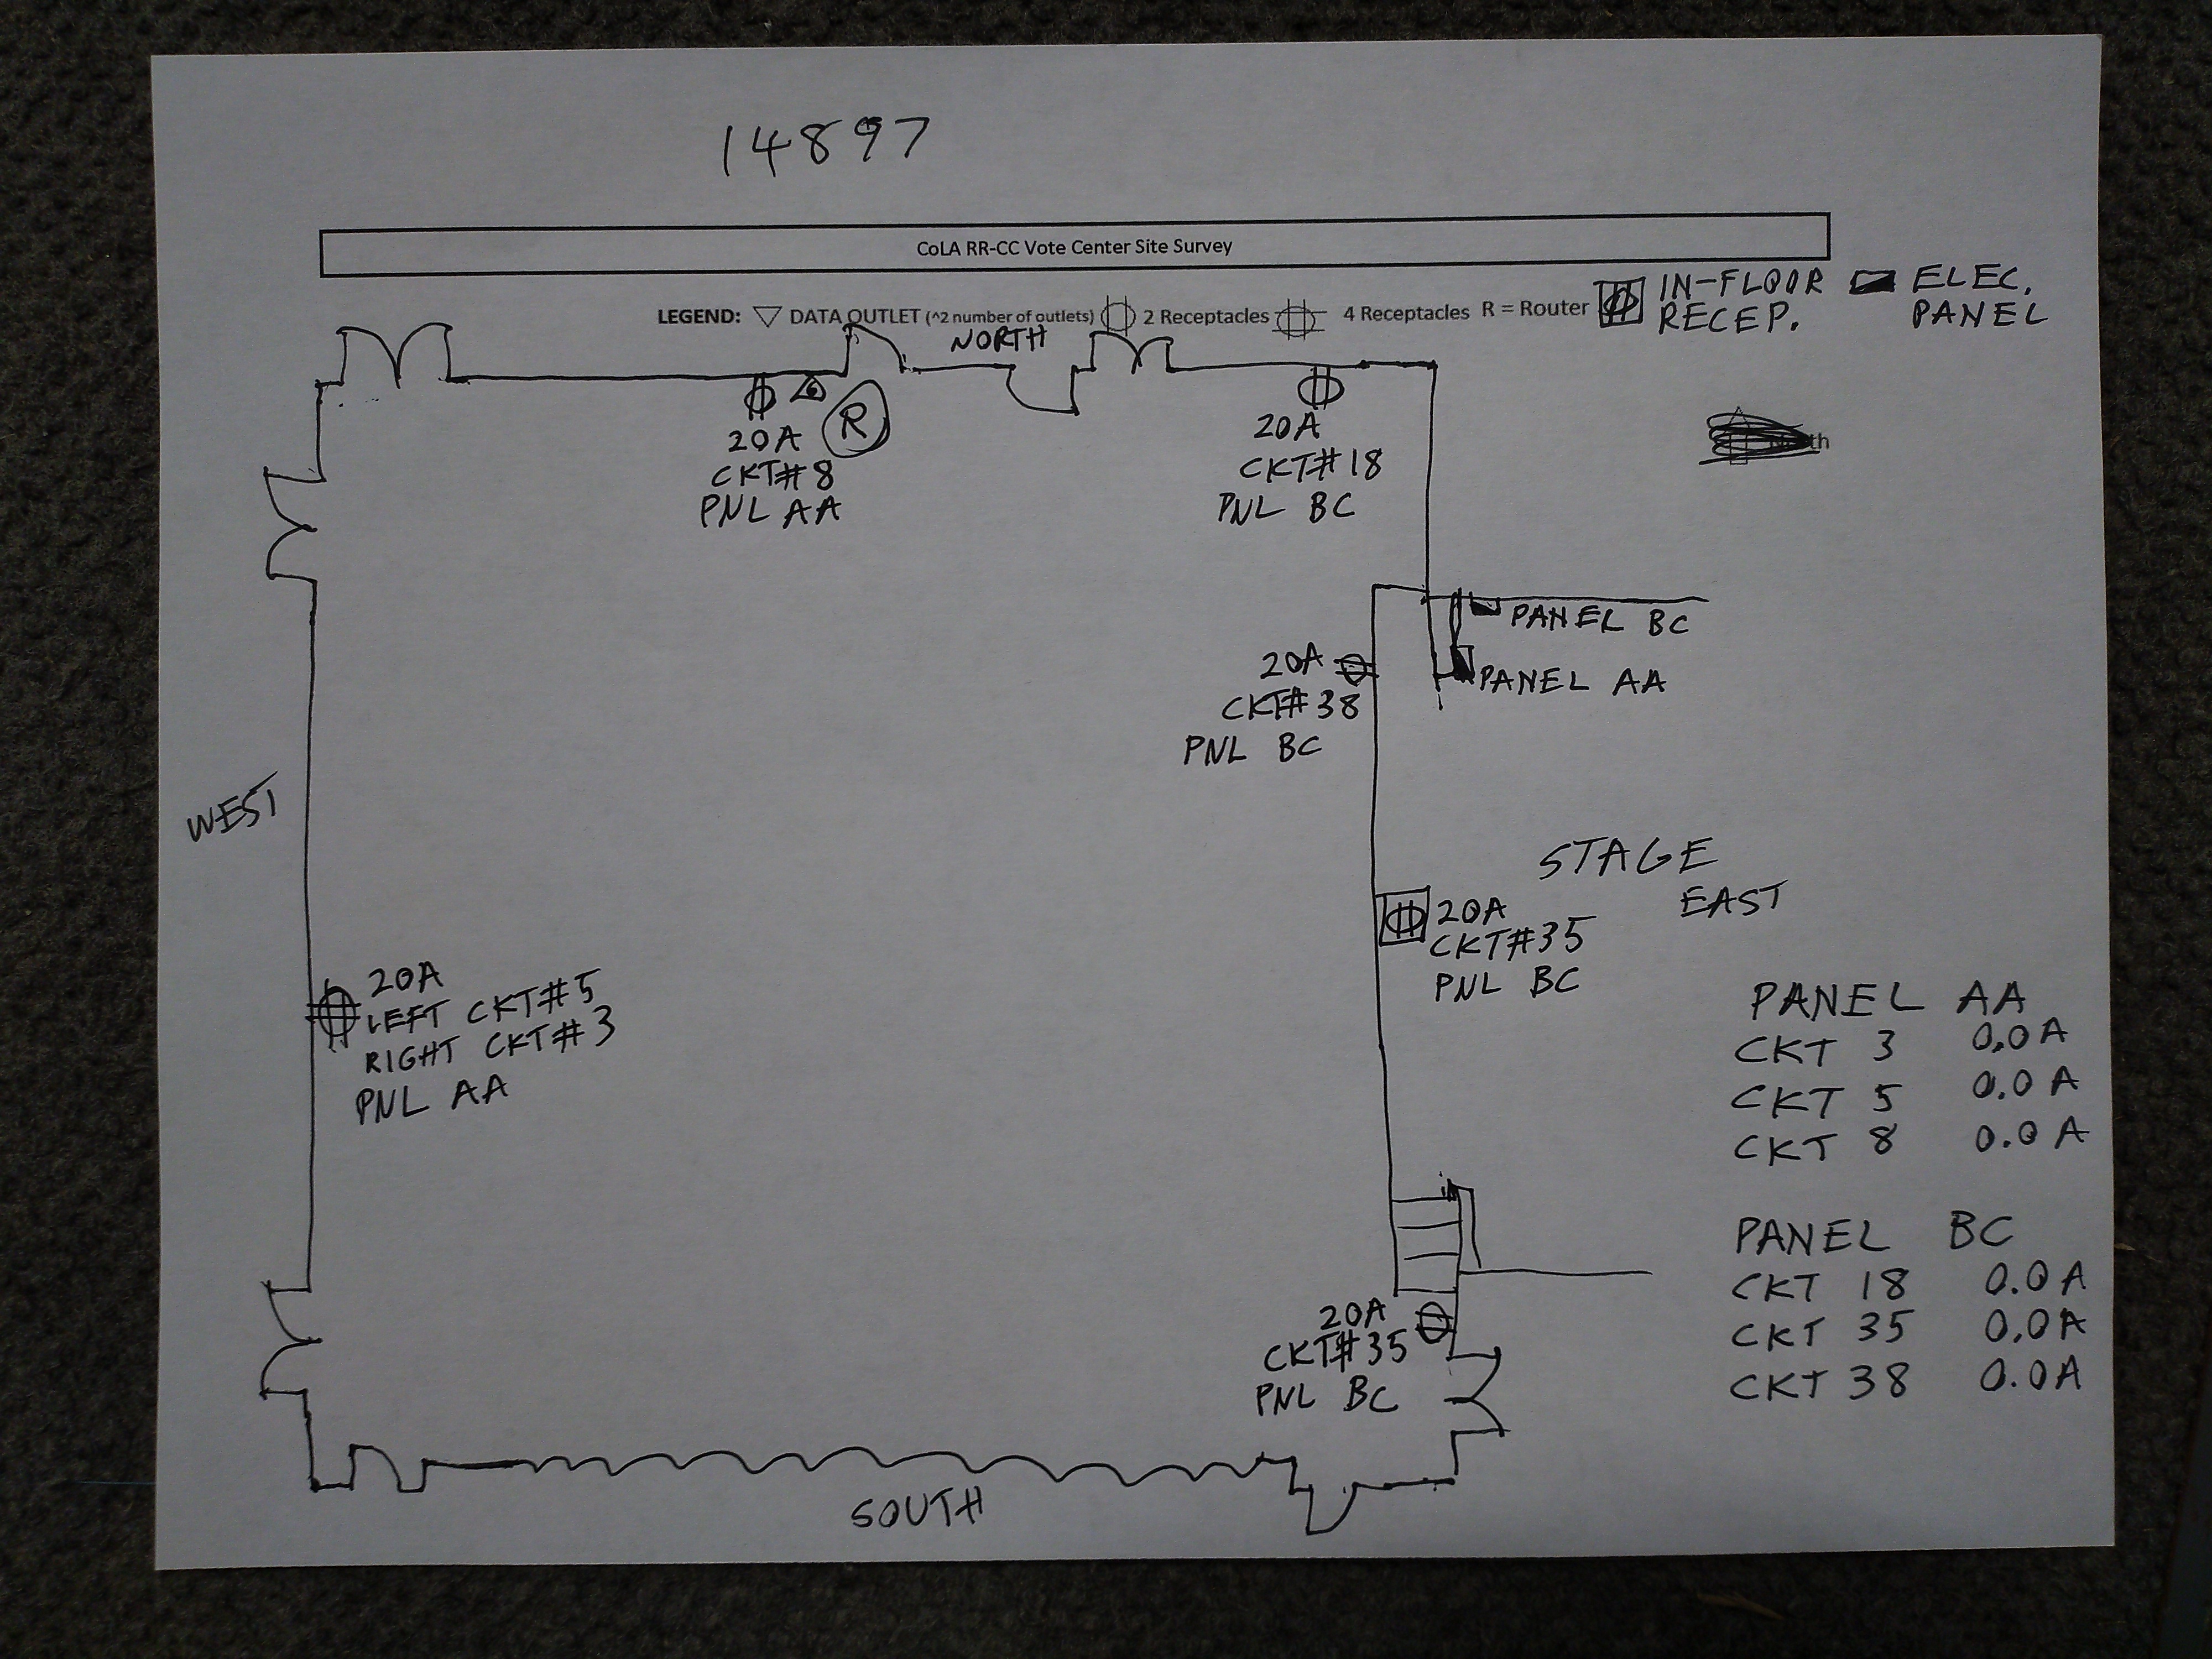 14897
CoLA RR-CC Vote Center Site Survey
LEGEND: DATA OUTLET (^2 number of outlets) 2 Receptacles 4 Receptacles R = Router
IN-FLOOR
RECEP.
ELEC.
PANEL
NORTH
R
20A
CKT#8
PNL AA
20A
CKT#18
PNL BC
PANEL BC
PANEL AA
20A
CKT#38
PNL BC
WEST
STAGE
EAST
20A
CKT#35
PNL BC
20A
LEFT CKT#5
RIGHT CKT#3
PNL AA
PANEL AA
CKT 3 0.0A
CKT 5 0.0A
CKT 8 0.0A
PANEL BC
CKT 18 0.0A
CKT 35 0.0A
CKT 38 0.0A
20A
CKT#35
PNL BC
SOUTH